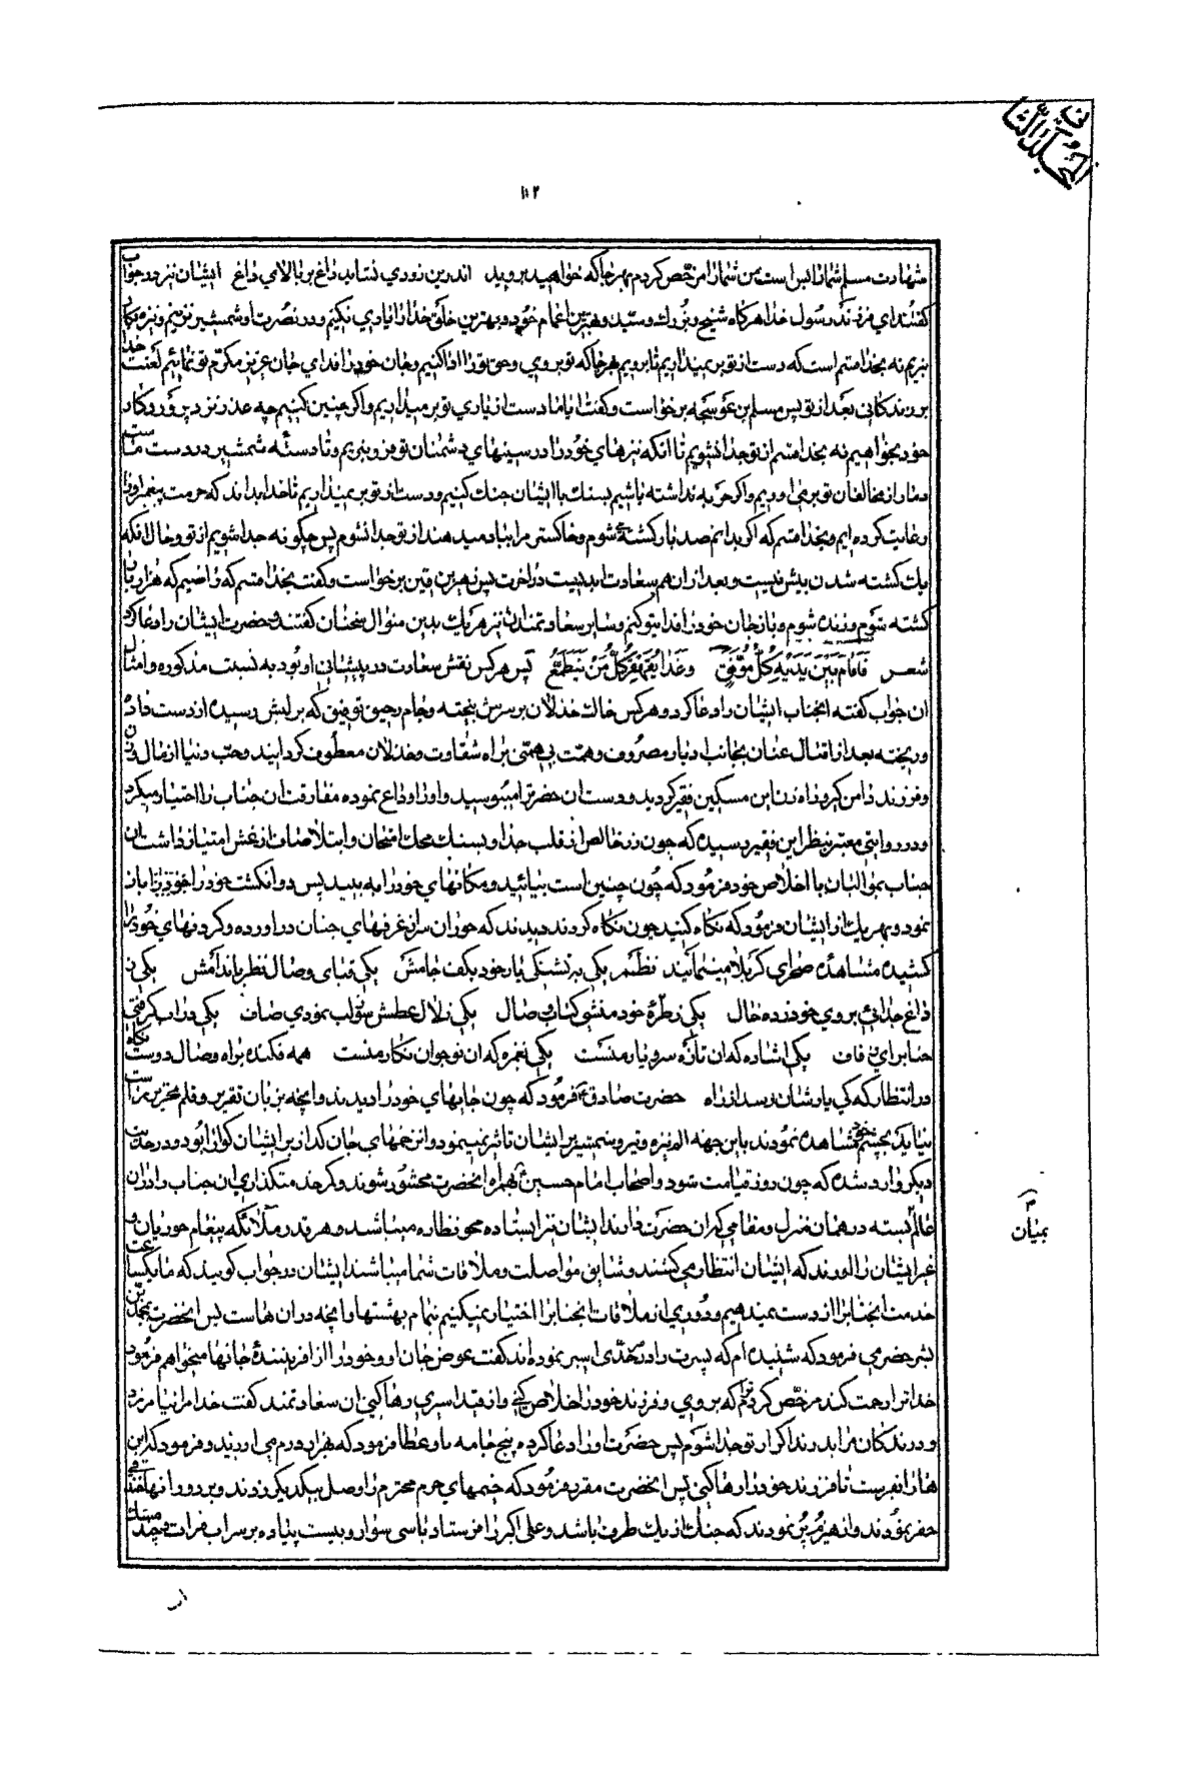 المجلد الثاني
١١٢
شهادت مسلم شما را بس است من شما را مرخص کردم بهر جا که خواهید بروید اندرین زودی نشاید داغ بر بالای داغ ایشان نیز در جواب
گفتند ای فرزند رسول خدا هرگاه شیخ و بزرك و سید و بهترین اعمام خود و بهترین خلق خدا را یاری نکنیم و در نصرت او شمشیر نزنیم و نیزه بکار
نبریم نه بخدا قسم است که دست از تو بر نمیداریم تا برویم هر جا که تو بروی و حق تو را ادا کنیم و جان خود را فدای جان عزیز مکرم تو نمائیم لعنت خدا
بر زندکانی بعد از تو پس مسلم بن عوسجه برخواست و گفت ایا ما دست از یاری تو بر میداریم و اگر چنین کنیم چه عذر نزد پروردکار
خود بخواهیم نه بخدا قسم از تو جدا نشویم تا انکه نیزهای خود را در سینهای دشمنان تو فرو بریم و تا دسته شمشیر در دست ماست
دمار از مخالفان تو بر می اوریم و اگر حربه نداشته باشیم بسنك با ایشان جنك کنیم و دست از تو بر نمیداریم تا خدا بداند که حرمت پیغمبر او را
رعایت کرده ایم و بخدا قسم که اگر بدانم صد بار کشته شوم و خاکستر مرا بباد میدهند از تو جدا نشوم پس چکونه جدا شویم از تو و حال انکه
یك کشته شدن بیش نیست و بعد از ان هم سعادت ابدیست در اخرت پس زهیر بن قین برخواست و گفت بخدا قسم که راضیم که هزار بار
کشته شوم و زنده شوم و باز جان خود را فدای تو کنم و سایر سعادتمندان نیز هر یك بدین منوال سخنان گفتند و حضرت ایشان را دعا کرد
شعر فاقام بین یدیه کل موفق وغدا یقهقر کل من یتطمع پس هر کس نقش سعادت در پیشانی او بود به نسبت مذکوره و امثال
ان جواب گفته انجناب ایشان را دعا کرد و هر کس خاك خذلان بر سرش بیخته و جام رحیق توفیق که بر لبش رسیده از دست فاده
و ریخته بعد از اقبال عنان بجانب ادبار مصروف و همت بی همتی براه شقاوت و خذلان معطوف کردانید و حب دنیا از مال و زن
و فرزند دامن کیر و زاه زن این مسکین فقیر کردید و دست ان حضرت را میبوسید و او را وداع نموده مفارقت ان جناب را اختیار میکرد
و در روایتی معتبر بنظر این فقیر رسیده که چون زر خالص از قلب جدا و بسنك محك امتحان و ابتلا صاف از غش امتیاز داشت ان
جناب بموالیان با اخلاص خود فرمود که چون چنین است بیائید و مکانهای خود را به بینید پس دو انکشت خود را
نمود و بهر یك از ایشان فرمود که نکاه کنید چون نکاه کردند دیدند که حوران سر از غرفهای جنان در اورده و کردنهای خود را
کشیده مشاهده صحرای کربلا مینمایند نظم یکی به تشنکی یار خود بکف جامش یکی قبای وصال نظر باندامش یکی ز
داغ جدائی بروی خود زده خال یکی ز طره خود منشی کتاب وصال یکی زلال عطش بر لب نمودی صاف
حنا برای زفاف یکی اشاره که ان تازه سرو یار منست یکی بغمزه که ان نوجوان نکار منست همه فکنده براه وصال دوست نکاه
در انتظار که کی یارشان رسد از راه حضرت صادق ع فرمود که چون جایهای خود را دیدند و انچه بزبان تقریر و قلم تحریر راست
نیاید بچشم خود مشاهده نمودند باین جهة الم نیزه و تیر و شمشیر بر ایشان تاثیر نمینمود و ان زخمهای جان کداز بر ایشان کوارا بود و در حدیث
دیکر وارد شده که چون روز قیامت شود و اصحاب امام حسین ع بهمراه انحضرت محشور شوند و کمر خدمتکذاری ان جناب را در ان
عالم بسته در همان منزل و مقامی که ان حضرت دارند ایشان نیز ایستاده محو نظاره میباشند و هر قدر ملائکه پیغام حوریان و
غیر ایشان را اورند که ایشان انتظار می کشند و شایق مواصلت و ملاقات شما میباشند ایشان در جواب کویند که ما یکساعت
خدمت انجناب را از دست نمیدهیم و دوری از ملاقات انجناب را اختیار نمیکنیم بتمام بهشتها و انچه در ان هاست پس انحضرت بمحمد بن
بشر حضرمی فرمود که شنیده ام که پسرت را در سرحد ری اسیر نموده اند گفت عوض جان او و خود را از افریننده جانها میخواهم فرمود
خدا ترا رحمت کند مرخص کردم ترا که بروی و فرزند خود را خلاص کنی و از قید اسیری رها کنی ان سعادتمند گفت خدا مرا نیامرزد
و درندکان مرا بدرند اکر از تو جدا شوم پس حضرت او را دعا کرده پنج جامه باو عطا فرمود که بهزار درم می ارزند و فرمود که این
ها را بفرست تا فرزند خود را رها کنی پس انحضرت مقرر فرمود که خیمهای حرم محترم را وصل بیکدیکر زدند و بر دور انها خندقی
حفر نمودند و از هیزم پر نمودند که جنك از یك طرف باشد و علی اکبر را فرستاد با سی سوار و بیست پیاده بر سر اب فرات و چند مشك
بمیان
اب